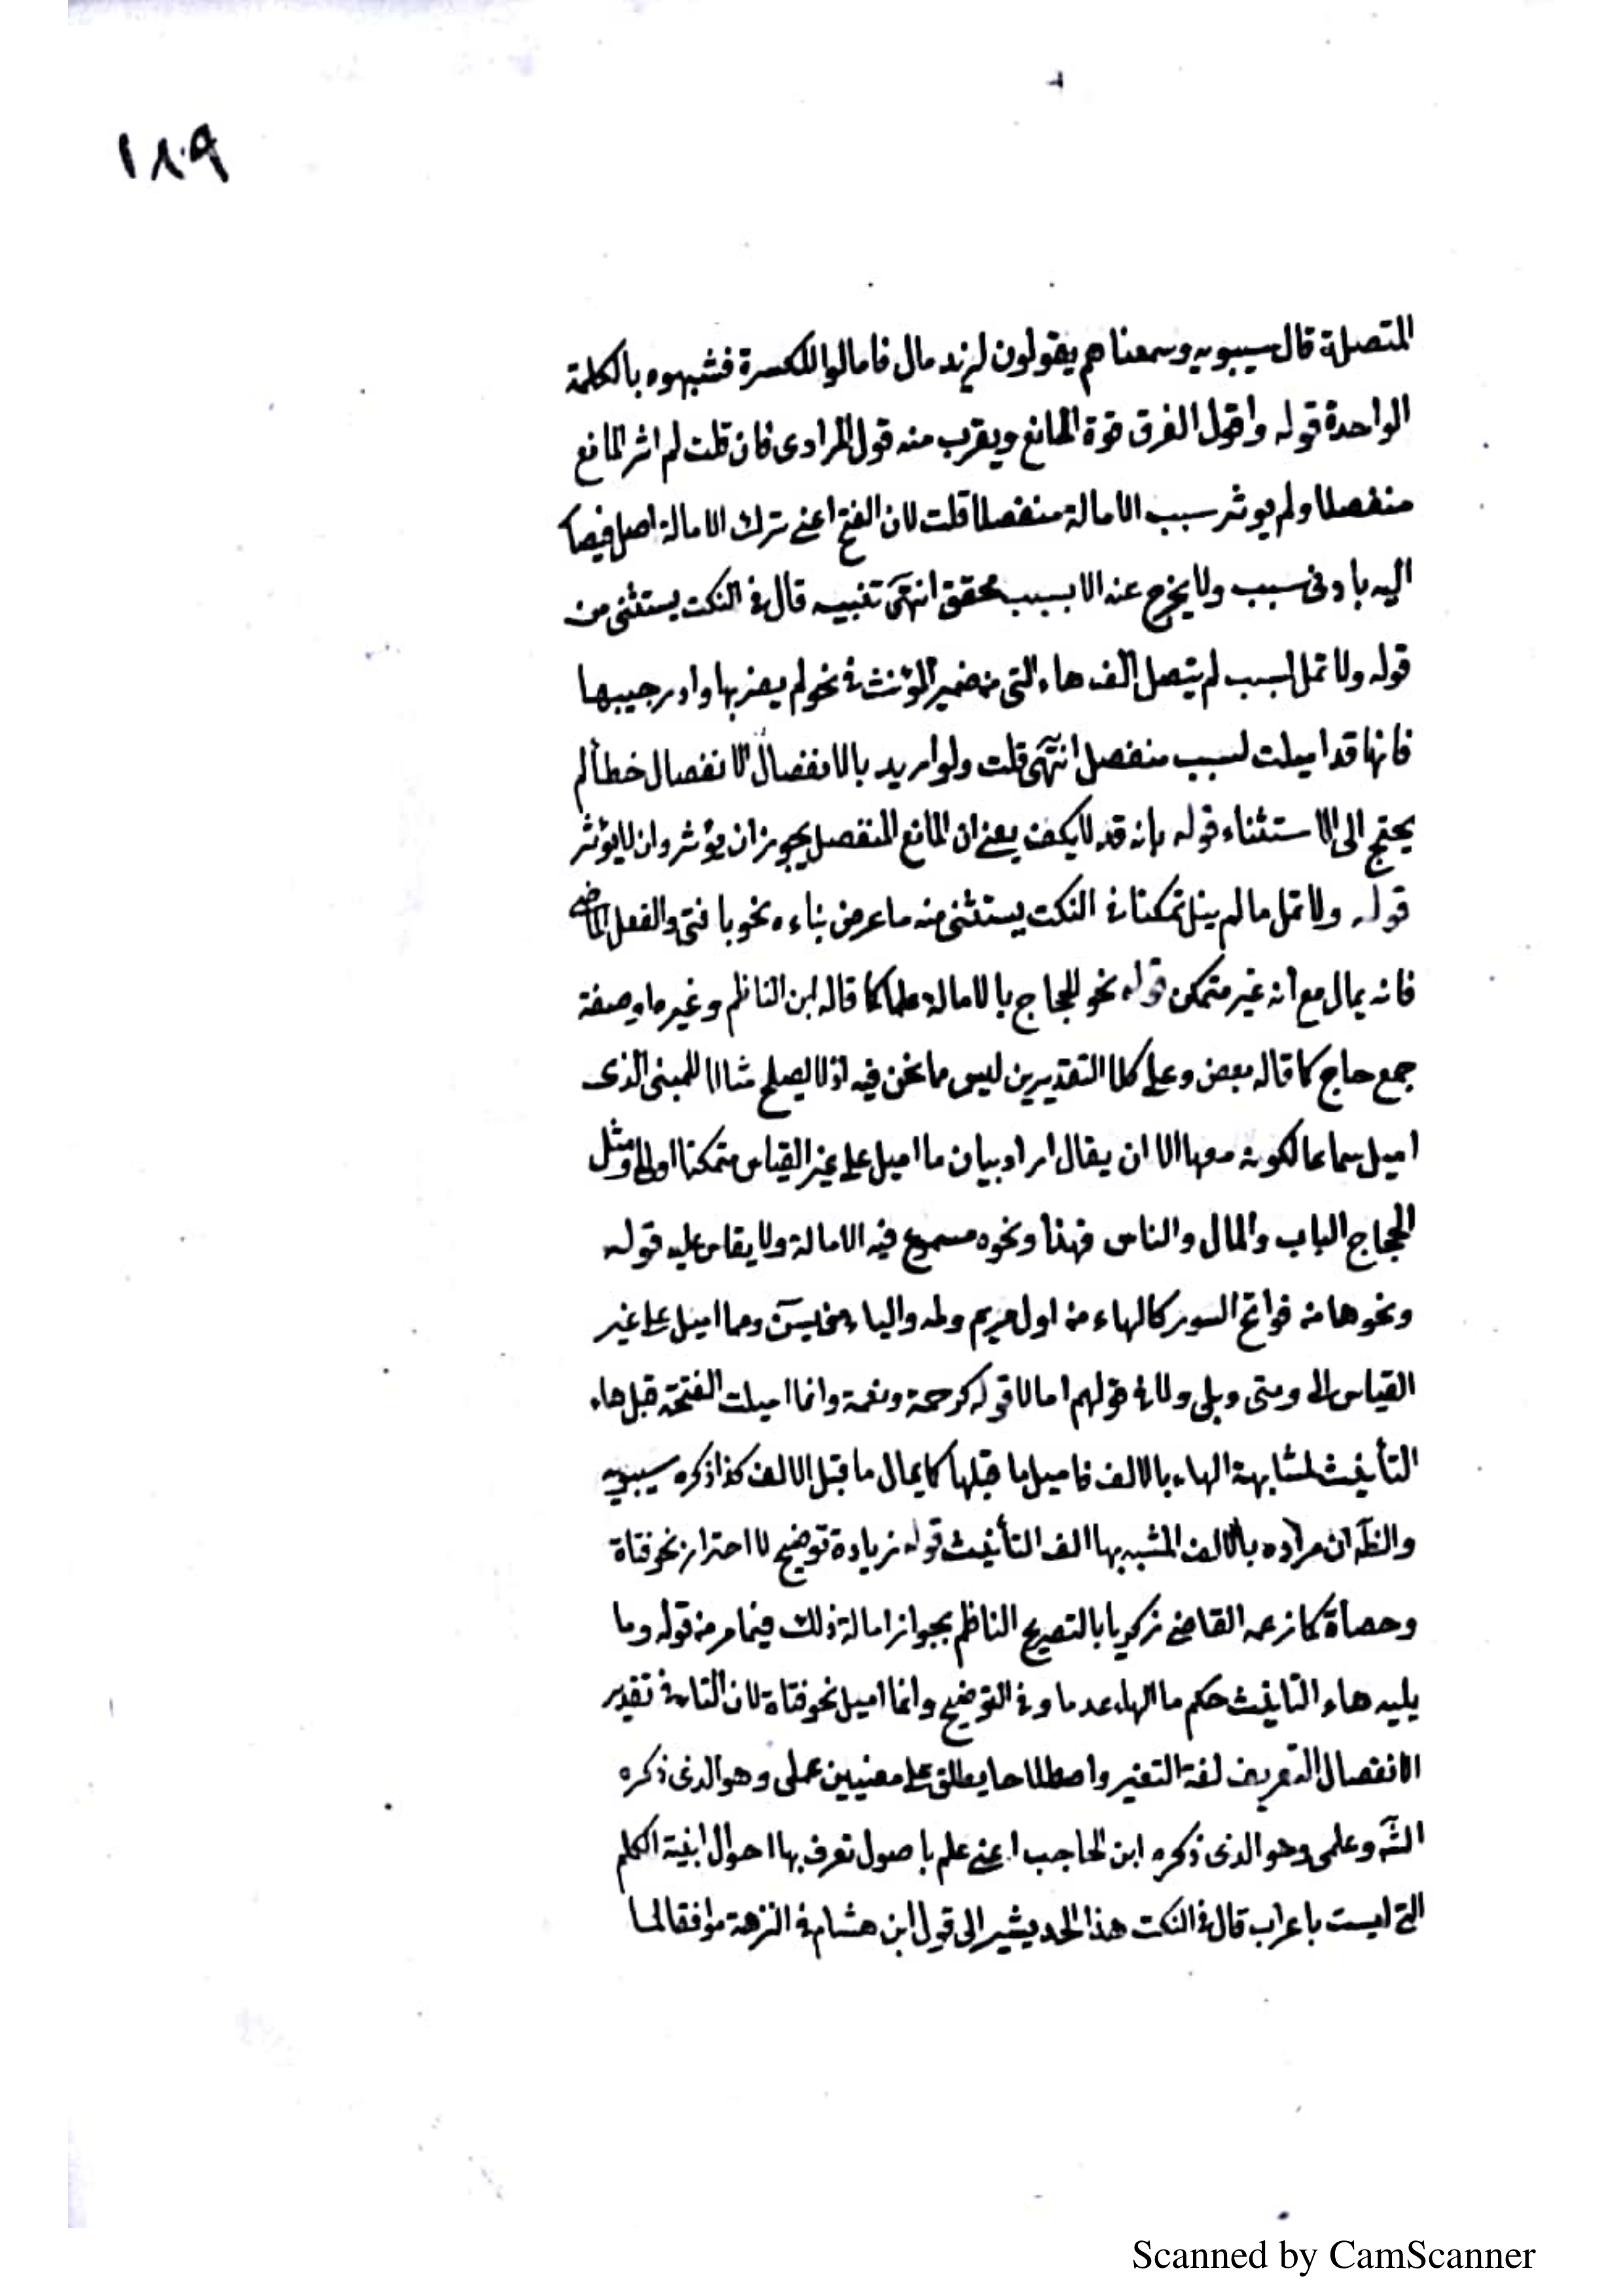 ١٨٠٩
المتصلة قال سيبويه وسمعناهم يقولون لزيد مال فامالوا للكسرة فشبهوه بالكلمة
الواحدة قوله واقول الفرق قوة المانع ويقرب منه قول المرادى فان قلت لم اثر المانع
منفصلا ولم يوثر سبب الامالة منفصلا قلت لان الفتح اعنى ترك الامالة اصل فيصار
اليه بادنى سبب ولا يخرج عنه الا بسبب محقق انتهى تنبيه قال فى النكت يستثنى من
قوله ولا تمل لسبب لم يتصل الف هاء التى من ضمير المؤنث فى نحو لم يضربها وادر جيبها
فانها قد اميلت لسبب منفصل انتهى قلت ولو اريد بالانفصال الانفصال خطألم
يحتج الى الاستثناء قوله بانه قد لايكف يعنى ان المانع المنفصل يجوز ان يؤثر وان لايؤثر
قوله ولا تمل مالم ينل تمكنا فى النكت يستثنى منه ما عرض بناءه نحو يا فتى والفعل الماضى
فانه يمال مع أنه غير متمكن قوله نحو الحجاج بالامالة علما كما قاله ابن الناظم وغيره او صفة
جمع حاج كما قاله بعض وعلى كلا التقديرين ليس مما نحن فيه اذ لا يصلح مثالا للمبنى الذى
اميل سماعا لكونه معربا الا ان يقال اراد بيان ما اميل على غير القياس متمكنا اولا ومثل
الحجاج الباب والمال والناس فهذا ونحوه مسموع فيه الامالة ولا يقاس عليه قوله
ونحوها من فواتح السور كالهاء من اول مريم وطه والياء من يس ومما اميل على غير
القياس الى ومتى وبلى ولا فى قولهم امالا قوله كرحمة ونعمة وانما اميلت الفتحة قبل هاء
التأنيث لمشابهة الهاء بالالف فاميل ما قبلها كما يمال ما قبل الالف كذا ذكره سيبويه
والظه ان مراده بالالف المشبه بها الف التأنيث قوله زيادة توضيح لا احتراز نحو فتاة
وحصاة كما زعمه القاضى زكريا بالتصريح الناظم بجواز امالة ذلك فيما مر من قوله وما
يليه هاء التانيث حكم ما الهاء عدما وفى التوضيح وانما اميل نحو فتاة لان التاء فى تقدير
الانفصال التعريف لغة التغير واصطلاحا يطلق على معنيين عملى وهو الذى ذكره
الشه وعلمى وهو الذى ذكره ابن الحاجب اعنى علم باصول تعرف بها احوال ابنية الكلم
التى ليست باعراب قال فى النكت هذا الحد يشير الى قول ابن هشام فى النزهة موافقا لما
Scanned by CamScanner